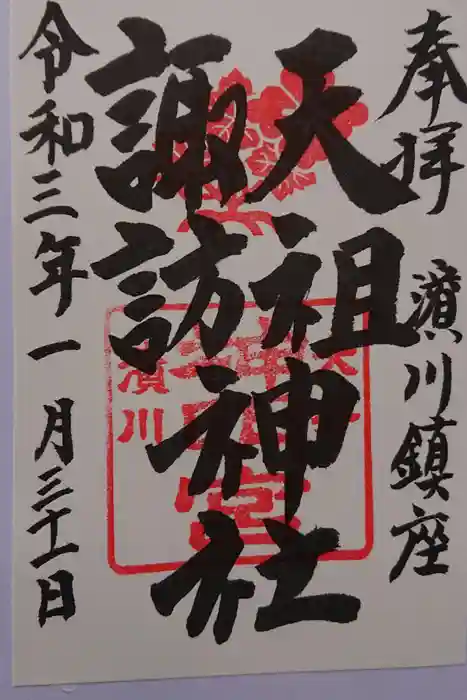 奉拝
濱川鎮座
天祖神社
諏訪神社
令和三年一月三十一日
濱川